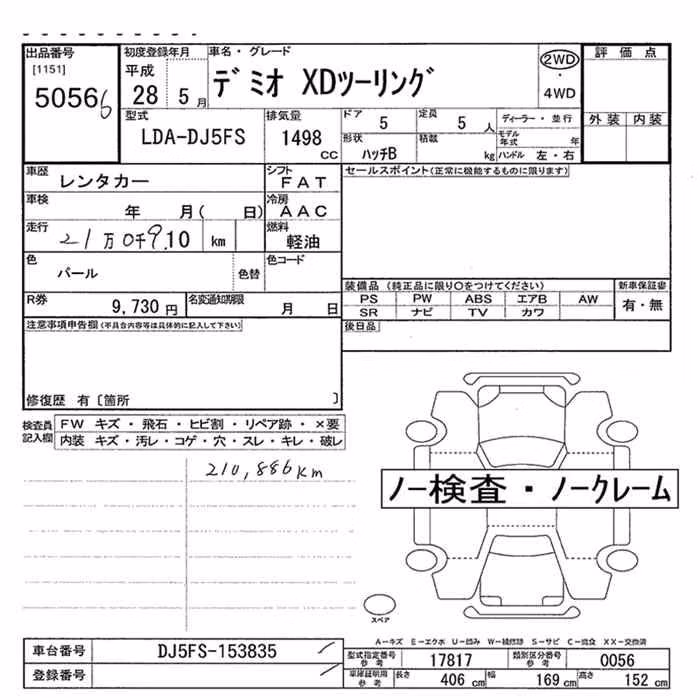 出品番号
[1151]
50566
初度登録年月
平成
28 5月
車名・グレード
デミオ XDツーリング
2WD
・
4WD
評価点
外装 内装
型式
LDA-DJ5FS
排気量
1498 CC
ドア
5
定員
5 人
形状
ハッチB
積載
kg
ディーラー・並行
モデル年式 年
ハンドル 左・右
車歴
レンタカー
シフト
FAT
車検
年 月( 日)
冷房
AAC
走行
21万0千9.10 km
燃料
軽油
色
パール
色替
色コード
R券
9,730 円
名変通知期限
月 日
セールスポイント(正常に機能するものに限ります)
装備品 (純正品に限り○をつけてください)
PS PW ABS エアB AW
SR ナビ TV カワ
新車保証書
有・無
後日品
注意事項申告欄(不具合内容等は具体的に記入して下さい)
修復歴 有〔箇所 〕
検査員記入欄
FW キズ・飛石・ヒビ割・リペア跡・×要
内装 キズ・汚レ・コゲ・穴・スレ・キレ・破レ
210,886km
ノー検査・ノークレーム
スペア
A-キズ E-エクボ U-凹み W-補修跡 S-サビ C-腐食 XX-交換済
車台番号
DJ5FS-153835
登録番号
型式指定番号参考
17817
類別区分番号参考
0056
車庫証明用参考
長さ 406 cm
幅 169 cm
高さ 152 cm